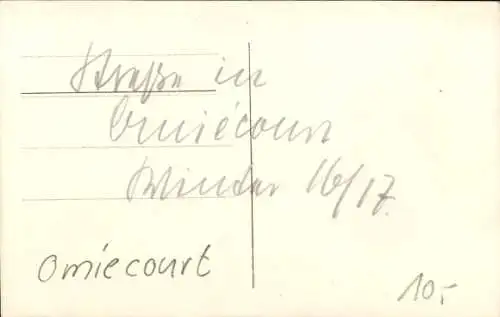 Straße in
Omiécourt
Winter 16/17.
Omiecourt
10,-